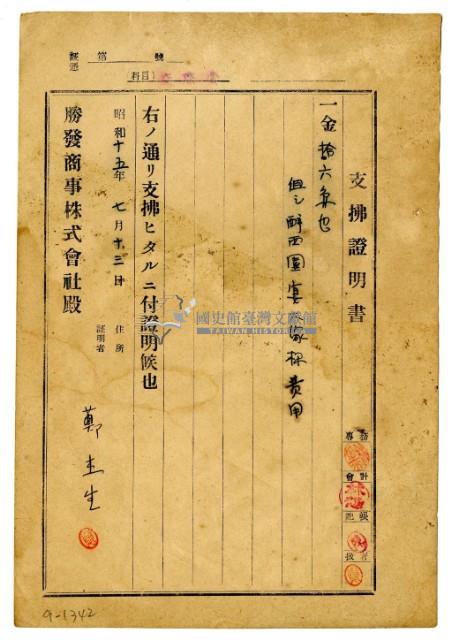 証憑 第 號
科目
支拂證明書
一金 拾六圓也
但シ醉西園宴
費用
右ノ通リ支拂ヒタルニ付證明候也
昭和十五年 七月十三日
住所
証明者
鄭
生
勝發商事株式會社殿
專務
會計
帳記
扱者
國史館臺灣文獻館
TAIWAN HISTORICA
9-1342